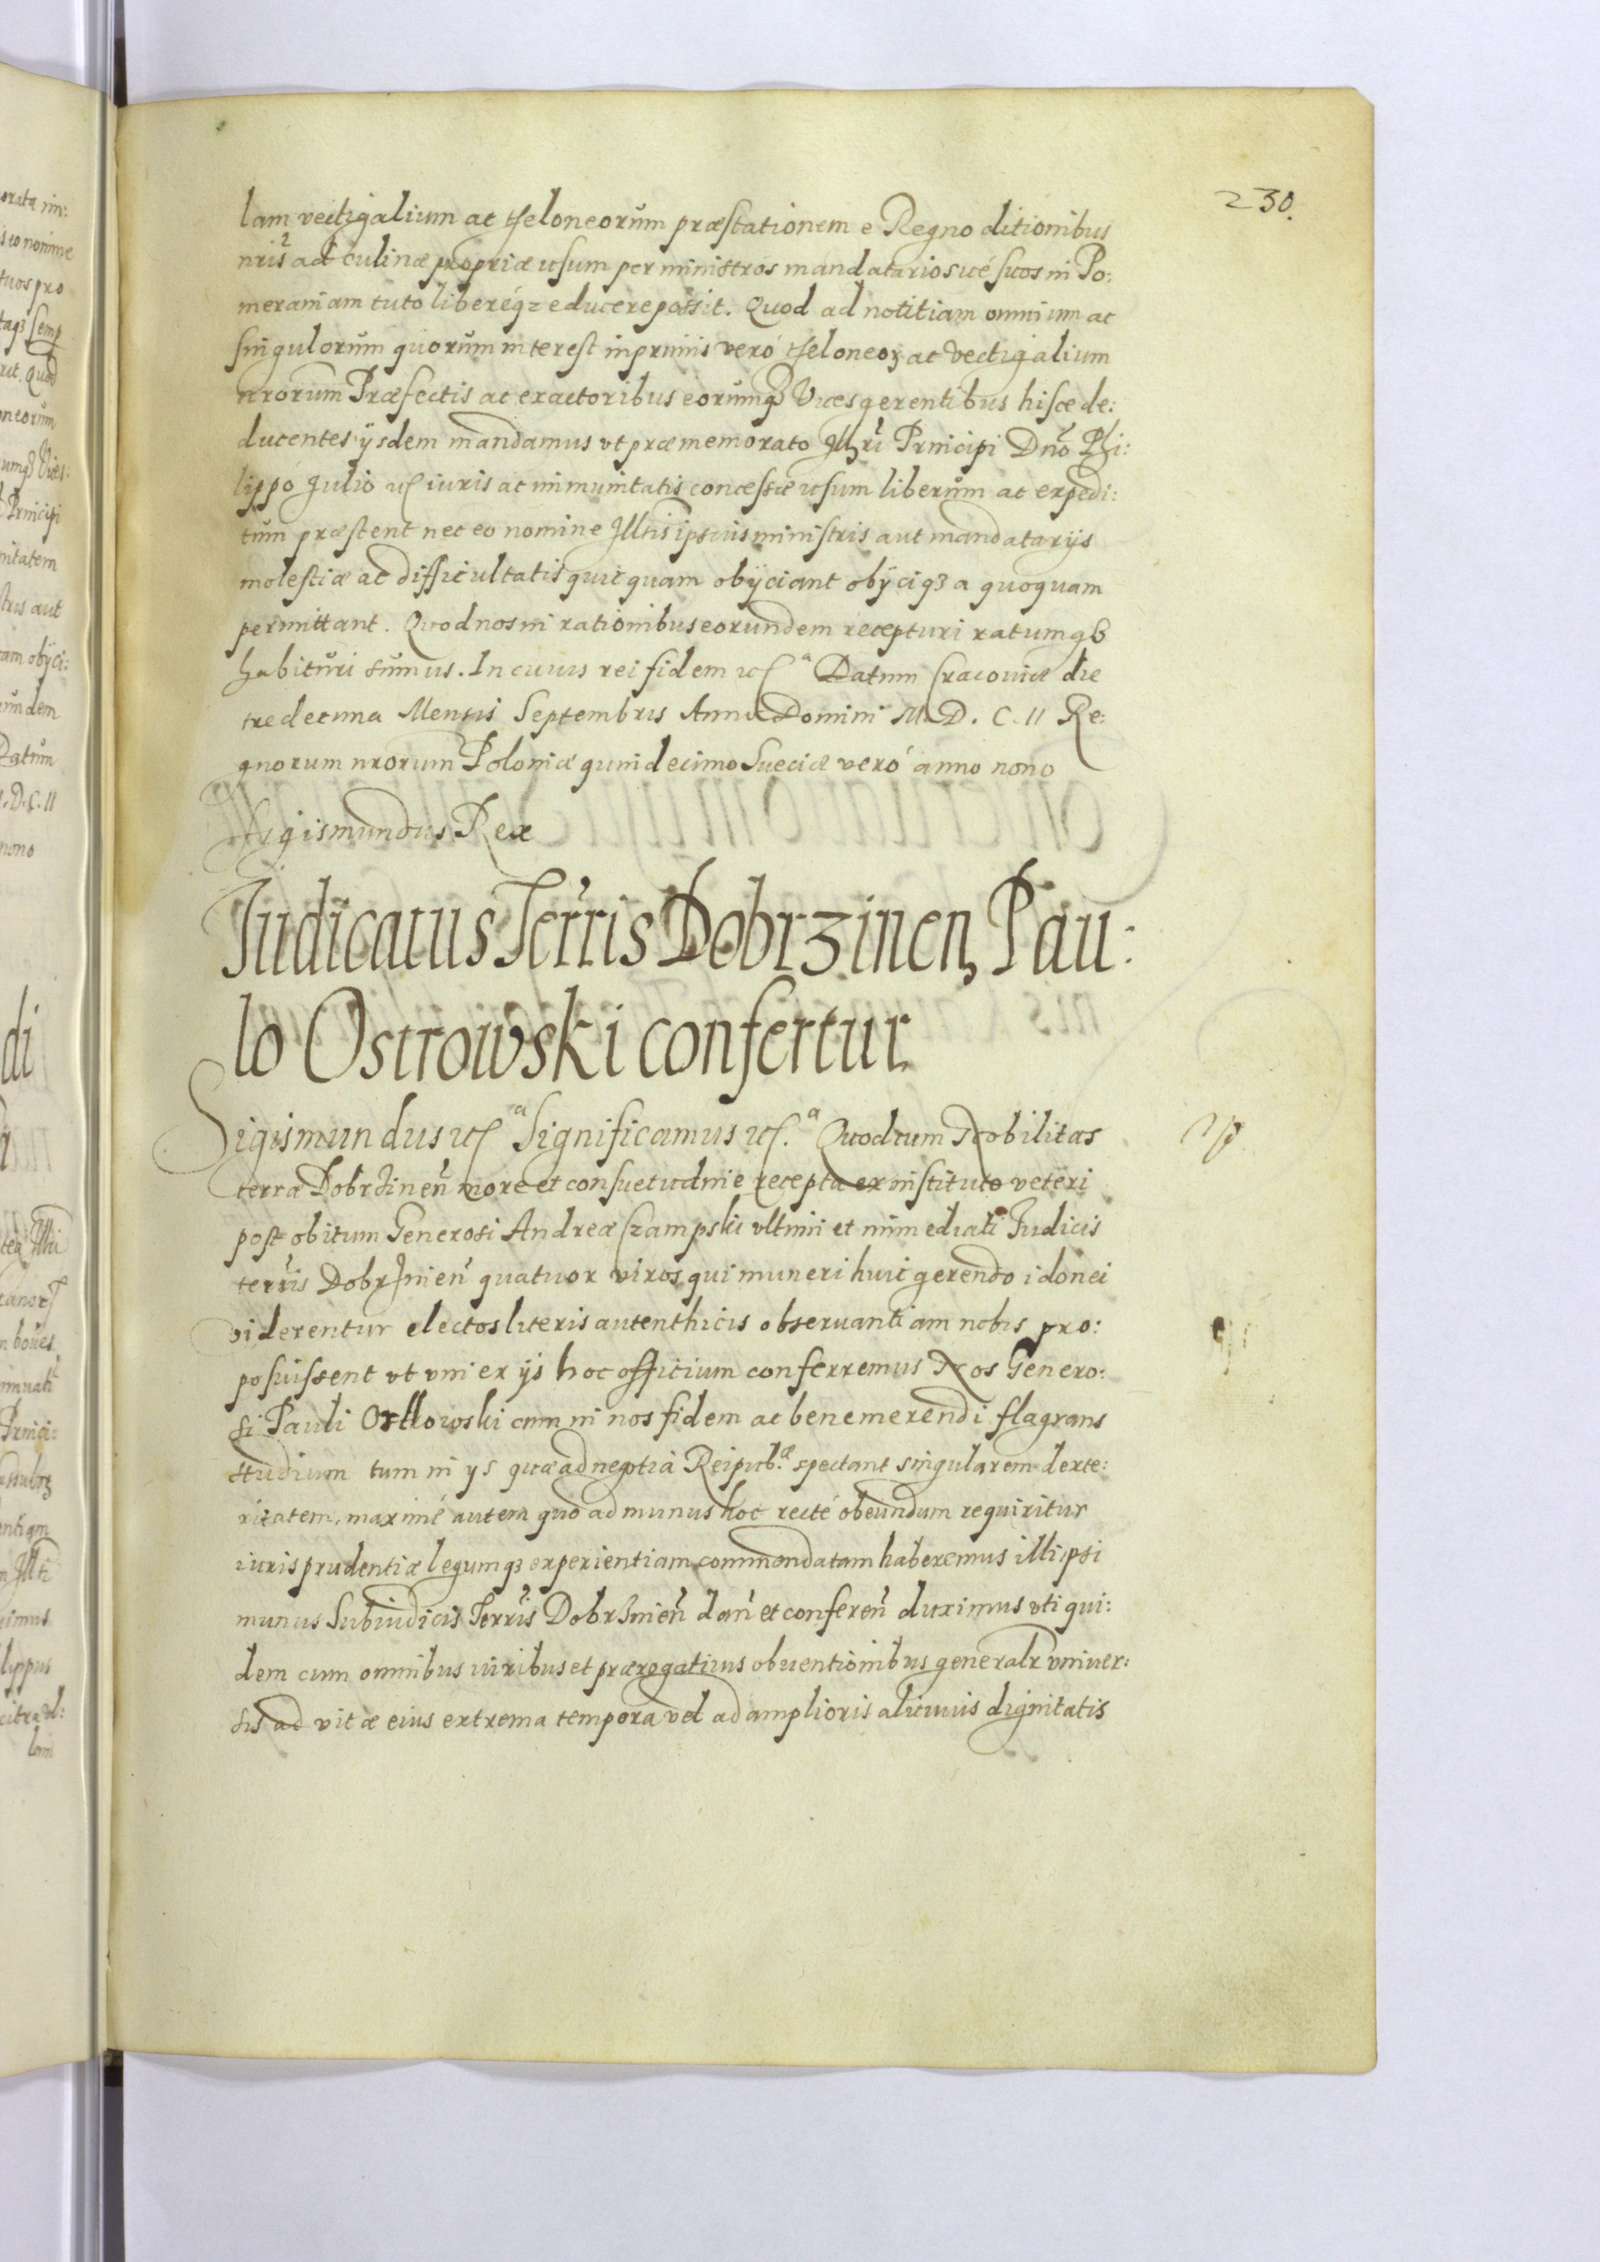 230.
lam vectigalium ac theloneorum præstationem e Regno ditionibus
nris ad culinæ propriæ usum per ministros mandatariosué suos in Po:
meraniam tuto liberéqz educere possit. Quod ad notitiam omnium ac
singulorum quorum interest inprimis veró theloneoꝝ ac vectigalium
nrorum Præfectis ac exactoribus eorumqz Vices gerentibus hisce de:
ducentes ijsdem mandamus vt præmemorato Illri Principi Dno Phi:
lippo Julio etc iuris ac immunitatis concessæ usum liberum ac expedi:
tum præstent nec eo nomine Illtis ipsius ministris aut mandatarijs
molestiæ ac difficultatis quicquam obijciant obijciqz a quoquam
permittant. Quod nos in rationibus eorundem recepturi ratumqz
habituri sumus. In cuius rei fidem etc a Datum Cracoviæ die
tredecima Mensis Septembris Anno Domini M.D.C.II Re:
gnorum nrorum Poloniæ quindecimo Sueciæ veró anno nono
Sigismundus Rex
Judicatus Terris Dobrzinen, Pau:
lo Ostrowski confertur
Sigismundus etc a Significamus etc. a Quod cum Nobilitas
terræ Dobrzinen more et consuetudine recepta ex instituto veteri
post obitum Generosi Andreæ Czampski vltimi et immediati Judicis
terris Dobrzinen quatuor viros qui muneri huic gerendo idonei
viderentur electos literis autenthicis obseruantiam nobis pro:
posuissent vt vni ex ijs hoc officium conferremus Nos Genero:
si Pauli Ostrowski cum in nos fidem ac benemerendi flagrans
studium tum in ys quæ ad negotia Reipub.æ spectant singularem dexte:
ritatem, maximé autem quo ad munus hoc recté obeundum requiritur
iurisprudentiæ legumqz experientiam commendatam haberemus illi ipsi
munus Subiudicis Terris Dobrzinen dan et conferen duximus vti qui:
dem cum omnibus iuribus et prærogatiuis obuentionibus generalr vniuer:
sis ad vitæ eius extrema tempora vel ad amplioris alicuius dignitatis